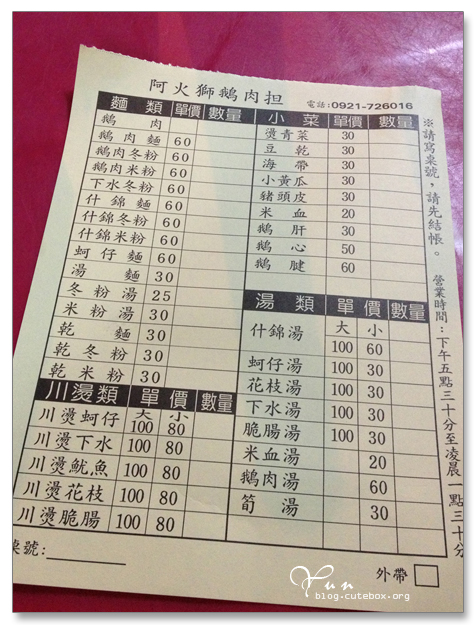 阿火獅鵝肉担
電話:0921-726016
麵類 單價 數量
鵝肉
鵝肉麵 60
鵝肉冬粉 60
鵝肉米粉 60
下水冬粉 60
什錦麵 60
什錦冬粉 60
什錦米粉 60
蚵仔麵 60
湯麵 30
冬粉湯 25
米粉湯 30
乾麵 30
乾冬粉 30
乾米粉 30
川燙類 單價 數量
大 小
川燙蚵仔 100 80
川燙下水 100 80
川燙魷魚 100 80
川燙花枝 100 80
川燙脆腸 100 80
桌號:
小菜 單價 數量
燙青菜 30
豆乾 30
海帶 30
小黃瓜 30
豬頭皮 30
米血 20
鵝肝 30
鵝心 50
鵝腱 60
湯類 單價 數量
大 小
什錦湯 100 60
蚵仔湯 100 30
花枝湯 100 30
下水湯 100 30
脆腸湯 100 30
米血湯 20
鵝肉湯 60
筍湯 30
外帶
※請寫桌號,請先結帳。
營業時間:下午五點三十分至凌晨一點三十分
Yun
blog-cutebox-org